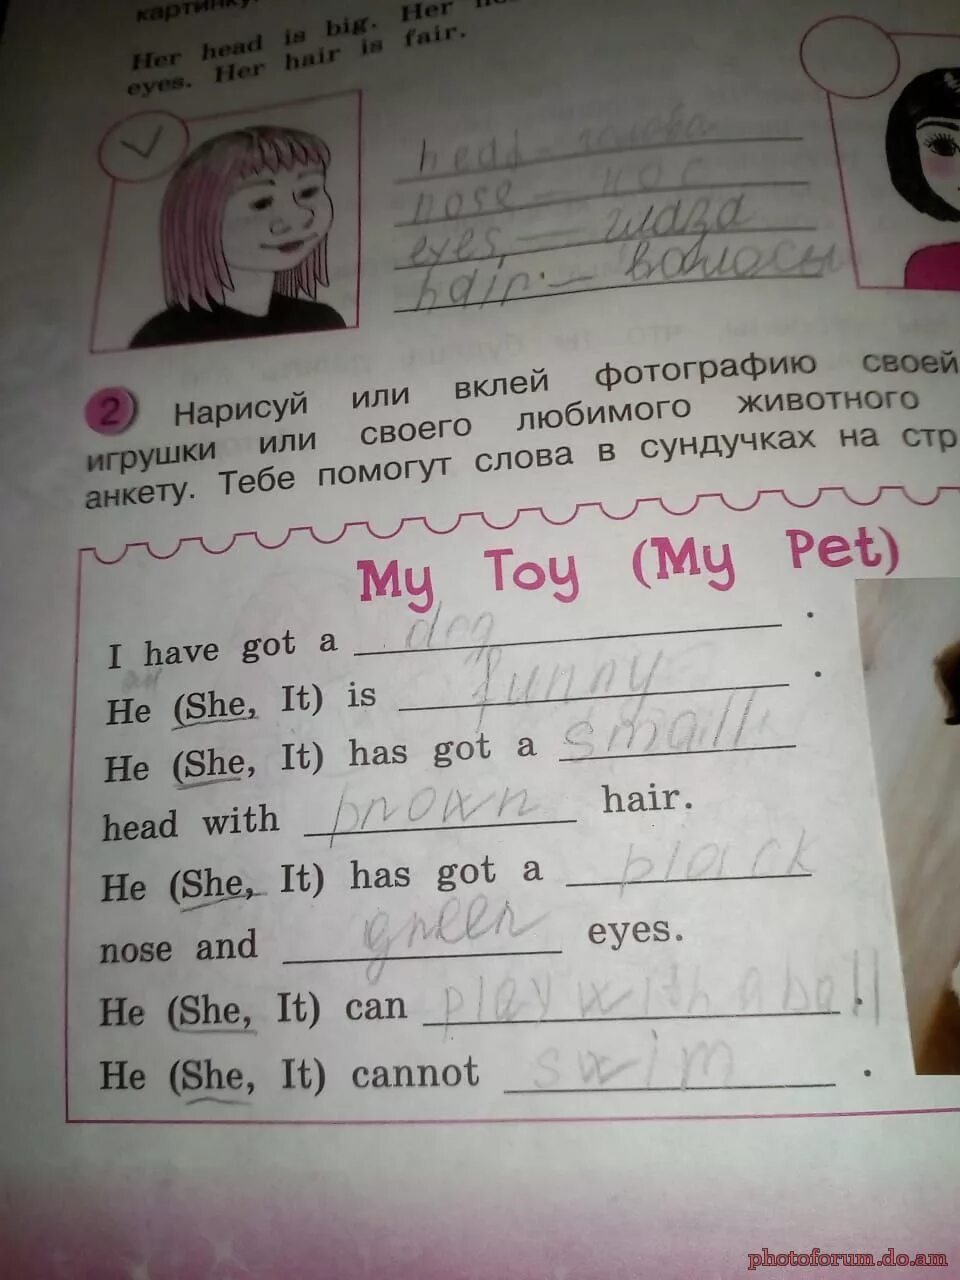 картинку.
Her head is big. Her
eyes. Her hair is fair.
head – голова
nose – нос
eyes, – глаза
hair – волосы
2 Нарисуй или вклей фотографию своей
игрушки или своего любимого животного
анкету. Тебе помогут слова в сундучках на стр
My Toy (My Pet)
I have got a dog .
He (She, It) is funny .
He (She, It) has got a small
head with brown hair.
He (She, It) has got a black
nose and green eyes.
He (She, It) can play with a ball.
He (She, It) cannot swim .
photoforum.do.am